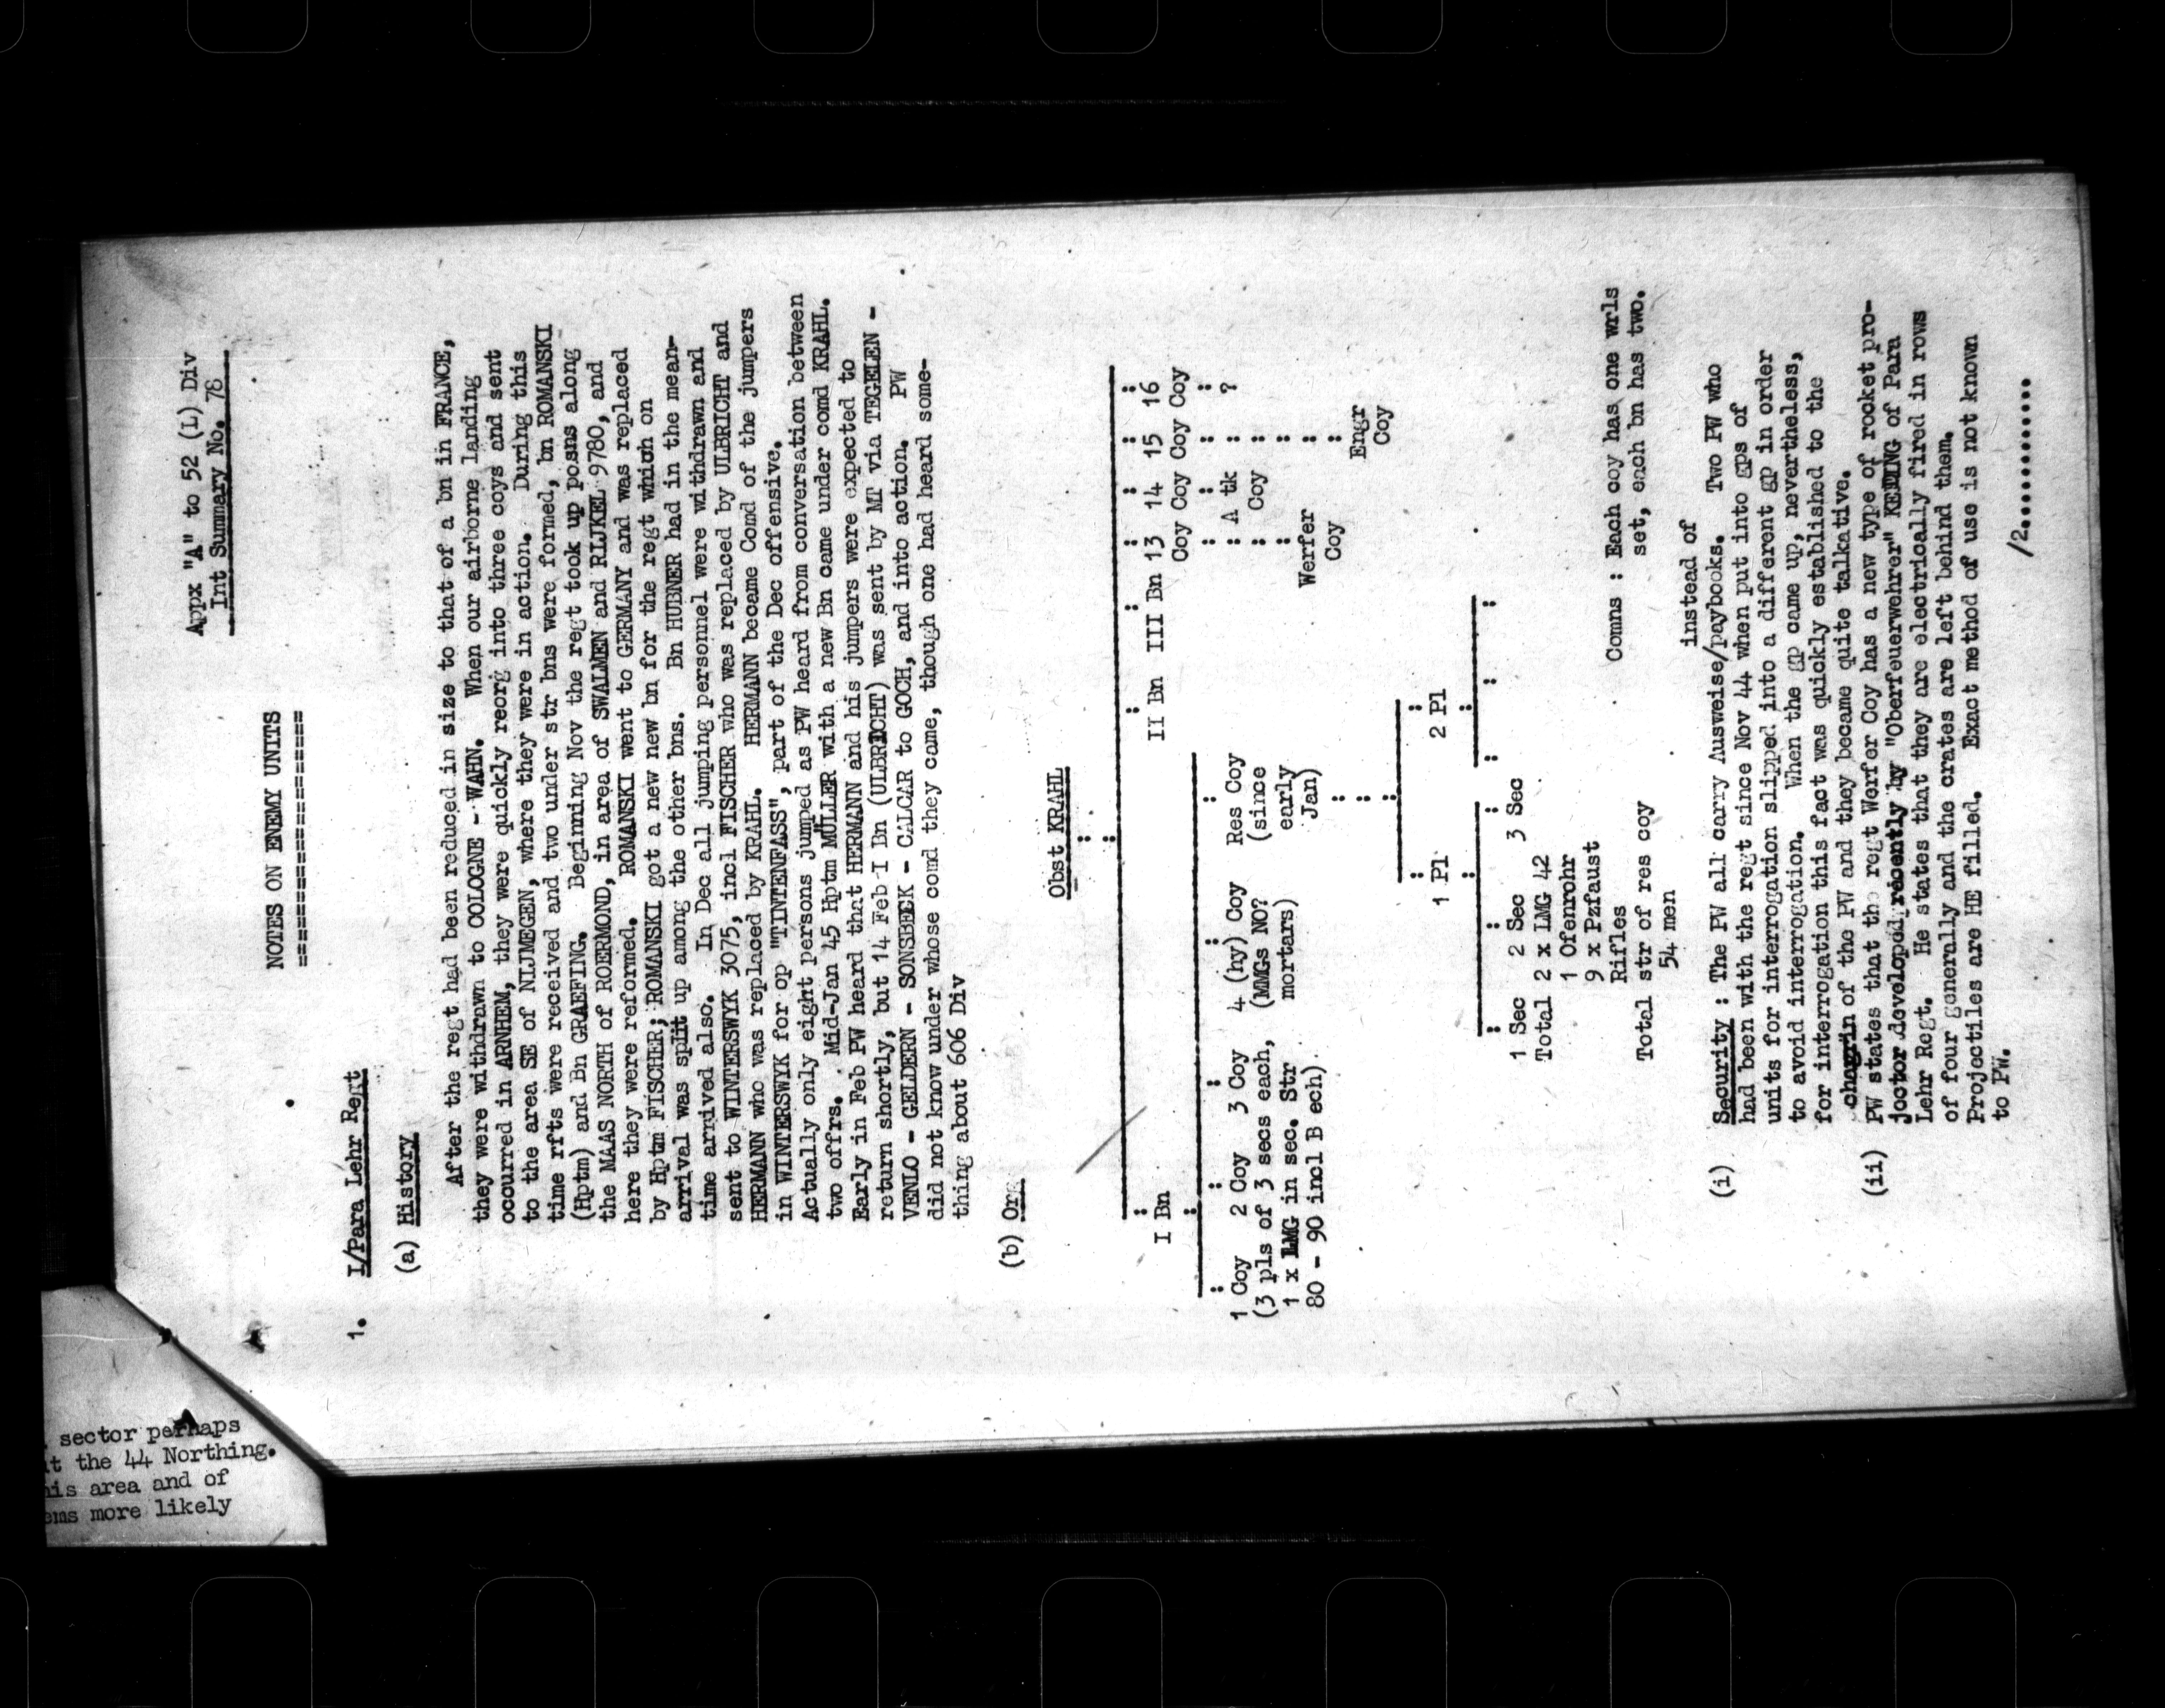 Appx "A" to 52 (L) Div
Int Summary No. 78
NOTES ON ENEMY UNITS
=====================
1. I/Para Lehr Regt
(a) History
After the regt had been reduced in size to that of a bn in FRANCE,
they were withdrawn to COLOGNE - WAHN. When our airborne landing
occurred in ARNHEM, they were quickly reorg into three coys and sent
to the area SE of NIJMEGEN, where they were in action. During this
time rfts were received and two under str bns were formed, bn ROMANSKI
(Hptm) and Bn GRAEFING. Beginning Nov the regt took up posns along
the MAAS NORTH of ROERMOND, in area of SWALMEN and RIJKEL 9780, and
here they were reformed. ROMANSKI went to GERMANY and was replaced
by Hptm FISCHER; ROMANSKI got a new new bn for the regt which on
arrival was split up among the other bns. Bn HUBNER had in the mean-
time arrived also. In Dec all jumping personnel were withdrawn and
sent to WINTERSWYK 3075, incl FISCHER who was replaced by ULBRICHT and
HERMANN who was replaced by KRAHL. HERMANN became Comd of the jumpers
in WINTERSWYK for op "TINTENFASS", part of the Dec offensive.
Actually only eight persons jumped as PW heard from conversation between
two offrs. Mid-Jan 45 Hptm MÜLLER with a new Bn came under comd KRAHL.
Early in Feb PW heard that HERMANN and his jumpers were expected to
return shortly, but 14 Feb I Bn (ULBRICHT) was sent by MT via TEGELEN -
VENLO - GELDERN - SONSBECK - CALCAR to GOCH, and into action. PW
did not know under whose comd they came, though one had heard some-
thing about 606 Div
(b) Org
Obst KRAHL
I Bn II Bn III Bn 13 14 15 16
Coy Coy Coy Coy
1 Coy 2 Coy 3 Coy 4 (hy) Coy Res Coy : A tk : ?
(3 pls of 3 secs each, (MMGs NO? (since : Coy :
1 x LMG in sec. Str mortars) early Werfer
80 - 90 incl B ech) Jan) Coy Engr
Coy
1 Pl 2 Pl
1 Sec 2 Sec 3 Sec
Total 2 x LMG 42
1 Ofenrohr
9 x Pzfaust
Rifles
Total str of res coy
54 men
Comns : Each coy has one wrls
set, each bn has two.
instead of
(i) Security : The PW all carry Ausweise/paybooks. Two PW who
had been with the regt since Nov 44 when put into gps of
units for interrogation slipped into a different gp in order
to avoid interrogation. When the gp came up, nevertheless,
for interrogation this fact was quickly established to the
chagrin of the PW and they became quite talkative.
(ii) PW states that the regt Werfer Coy has a new type of rocket pro-
jector developed recently by "Oberfeuerwehrer" KEDING of Para
Lehr Regt. He states that they are electrically fired in rows
of four generally and the crates are left behind them.
Projectiles are HE filled. Exact method of use is not known
to PW.
/2............
sector perhaps
the 44 Northing.
his area and of
more likely